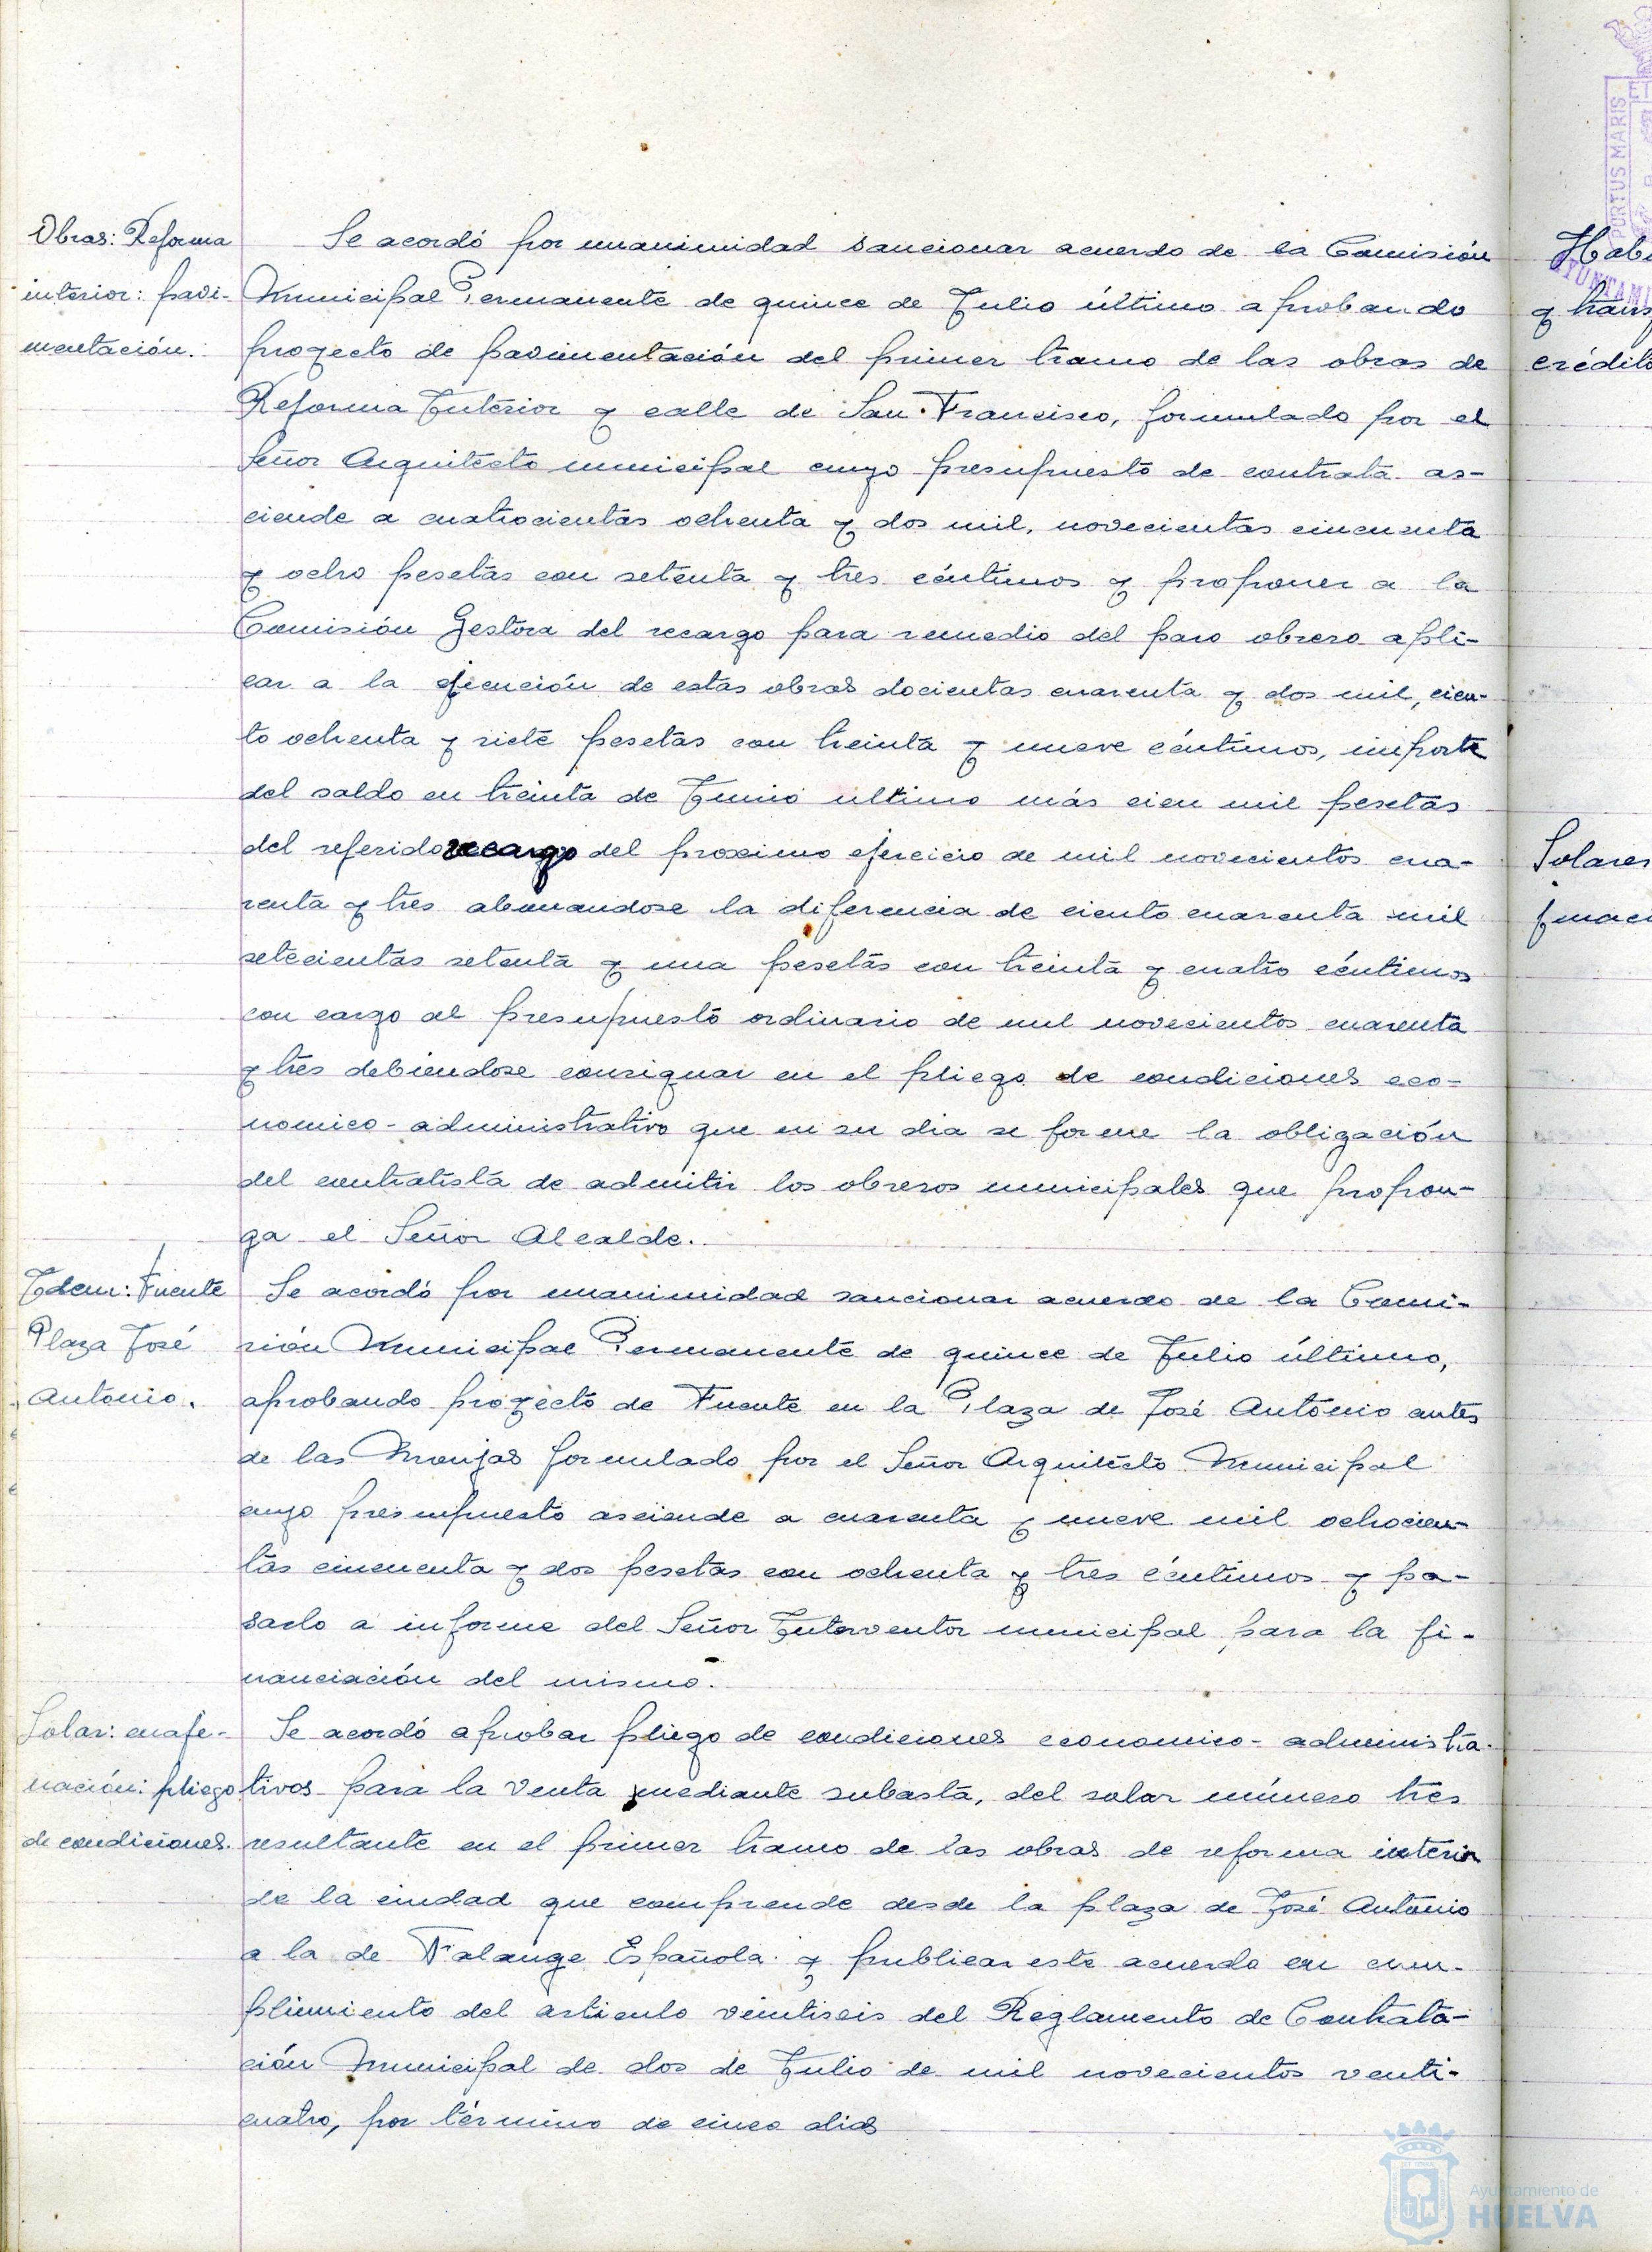 Obras: Reforma
interior: pavi-
mentación.
Se acordó por unanimidad sancionar acuerdo de la Comisión
Municipal Permanente de quince de Julio último aprobando
proyecto de pavimentación del primer tramo de las obras de
Reforma Interior y calle de San Francisco, formulado por el
Señor Arquitecto municipal cuyo presupuesto de contrata as-
ciende a cuatrocientas ochenta y dos mil, novecientas cincuenta
y ocho pesetas con setenta y tres céntimos y proponer a la
Comisión Gestora del recargo para remedio del paro obrero apli-
car a la ejecución de estas obras docientas cuarenta y dos mil, cien-
to ochenta y siete pesetas con treinta y nueve céntimos, importe
del saldo en treinta de Junio ultimo más cien mil pesetas
del referido recargo del proximo ejercicio de mil novecientos cua-
renta y tres abonandose la diferencia de ciento cuarenta mil
setecientas setenta y una pesetas con treinta y cuatro céntimos
con cargo al presupuesto ordinario de mil novecientos cuarenta
y tres debiendose consignar en el pliego de condiciones eco-
nomico-administrativo que en su dia se forme la obligación
del contratista de admitir los obreros municipales que propon-
ga el Señor Alcalde.
Idem: Fuente
Plaza José
Antonio.
Se acordó por unanimidad sancionar acuerdo de la Comi-
sión Municipal Permanente de quince de Julio último,
aprobando proyecto de Fuente en la Plaza de José Antonio antes
de las Monjas formulado por el Señor Arquitecto Municipal
cuyo presupuesto asciende a cuarenta y nueve mil ochocien-
tas cincuenta y dos pesetas con ochenta y tres céntimos y pa-
sarlo a informe del Señor Interventor municipal para la fi-
nanciación del mismo.
Solar: enaje-
nación: pliego
de condiciones.
Se acordó aprobar pliego de condiciones economico-administra-
tivos para la venta mediante subasta, del solar número tres
resultante en el primer tramo de las obras de reforma interior
de la ciudad que comprende desde la plaza de José Antonio
a la de Falange Española y publicar este acuerdo en cum-
plimiento del articulo veintiseis del Reglamento de Contrata-
ción Municipal de dos de Julio de mil novecientos venti-
cuatro, por término de cinco dias
PORTUS MARIS
AYUNTAMI
Habi
y trans
crédito
Solares
Ayuntamiento de
HUELVA